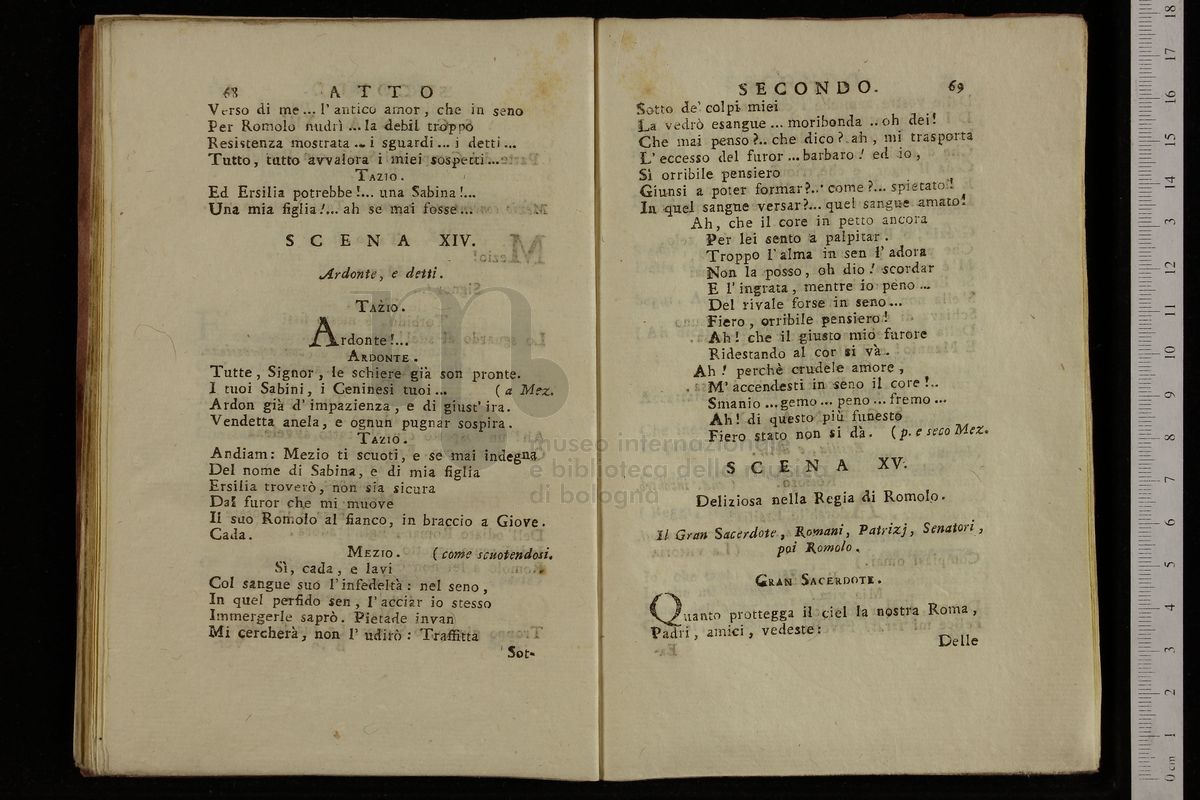 68 ATTO
Verso di me... l'antico amor, che in seno
Per Romolo nudrì... la debil troppo
Resistenza mostrata... i sguardi... i detti...
Tutto, tutto avvalora i miei sospetti...
TAZIO.
Ed Ersilia potrebbe!... una Sabina!...
Una mia figlia!... ah se mai fosse...
SCENA XIV.
Ardonte, e detti.
TAZIO.
Ardonte!...
ARDONTE.
Tutte, Signor, le schiere già son pronte.
I tuoi Sabini, i Ceninesi tuoi... (a Mez.
Ardon già d'impazienza, e di giust'ira.
Vendetta anela, e ognun pugnar sospira.
TAZIO.
Andiam: Mezio ti scuoti, e se mai indegna
Del nome di Sabina, e di mia figlia
Ersilia troverò, non sia sicura
Dal furor che mi muove
Il suo Romolo al fianco, in braccio a Giove.
Cada.
MEZIO. (come scuotendosi.
Sì, cada, e lavi
Col sangue suo l'infedeltà: nel seno,
In quel perfido sen, l'acciar io stesso
Immergerle saprò. Pietade invan
Mi cercherà, non l'udirò: Traffitta
Sot-
SECONDO. 69
Sotto de' colpi miei
La vedrò esangue... moribonda.. oh dei!
Che mai penso?.. che dico? ah, mi trasporta
L'eccesso del furor... barbaro! ed io,
Sì orribile pensiero
Giunsi a poter formar?... come?... spietato!!
In quel sangue versar?... quel sangue amato!
Ah, che il core in petto ancora
Per lei sento a palpitar.
Troppo l'alma in sen l'adora
Non la posso, oh dio! scordar
E l'ingrata, mentre io peno...
Del rivale forse in seno...
Fiero, orribile pensiero!
Ah! che il giusto mio furore
Ridestando al cor si và.
Ah! perchè crudele amore,
M'accendesti in seno il core!..
Smanio... gemo... peno... fremo...
Ah! di questo più funesto
Fiero stato non si dà. (p. e seco Mez.
SCENA XV.
Deliziosa nella Regia di Romolo.
Il Gran Sacerdote, Romani, Patrizj, Senatori,
poi Romolo.
GRAN SACERDOTE.
Quanto prottegga il ciel la nostra Roma,
Padri, amici, vedeste:
Delle
museo internazionale
e biblioteca della musica
di bologna
0 cm 1 2 3 4 5 6 7 8 9 10 11 12 13 14 15 16 17 18